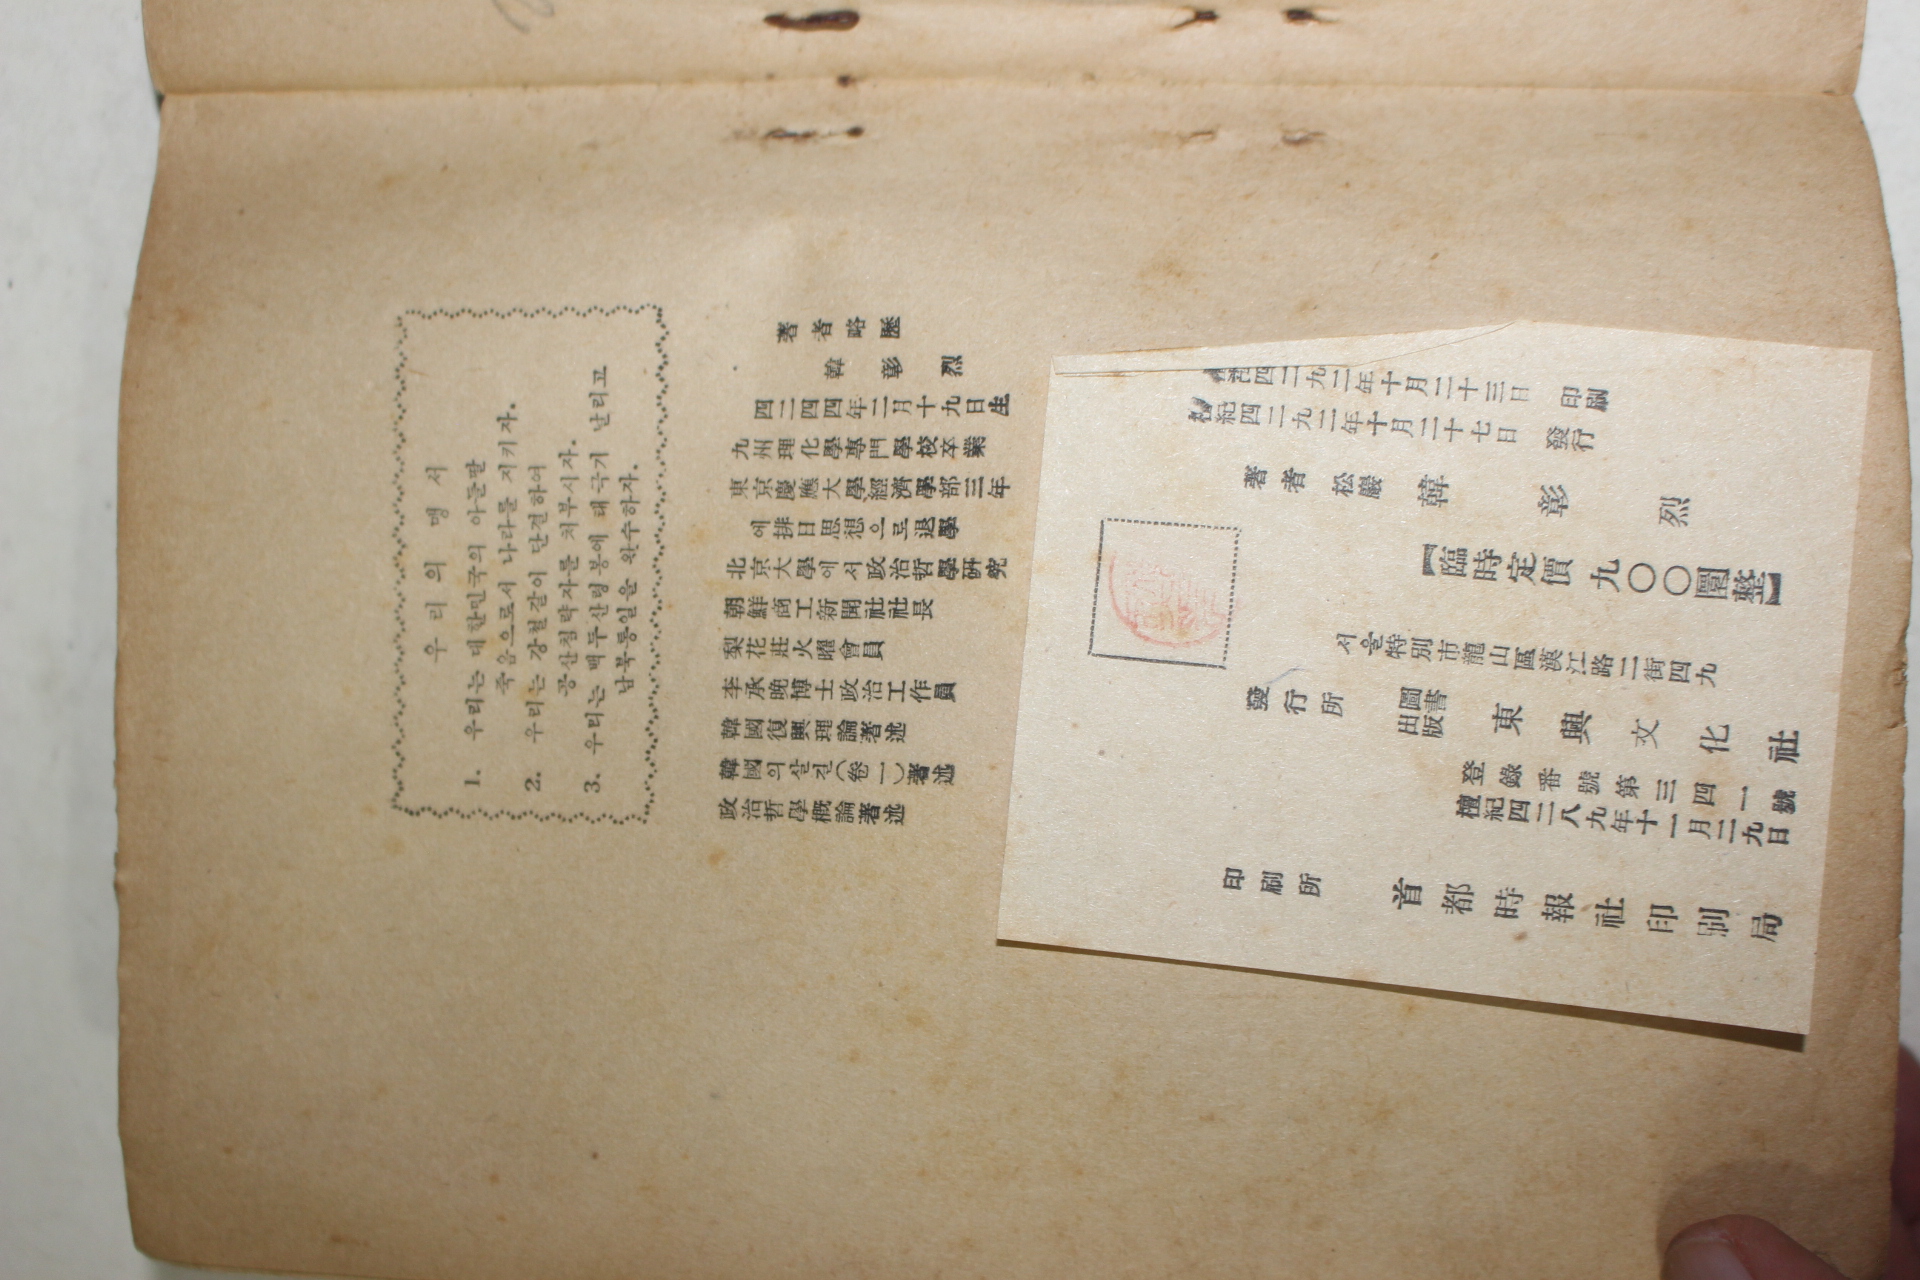 우리의 맹서
1. 우리는 대한민국의 아들딸
죽음으로서 나라를 지키자.
2. 우리는 강철같이 단결하여
공산침략자를 처부시자.
3. 우리는 백두산령봉에 태극기 날리고
남북통일을 완수하자.
著者略歷
韓彰烈
四二四四年二月十九日生
九州理化學專門學校卒業
東京慶應大學經濟學部三年
에排日思想으로退學
北京大學에서政治哲學硏究
朝鮮商工新聞社社長
梨花莊火曜會員
李承晩博士政治工作員
韓國復興理論著述
韓國의살길(卷一)著述
政治哲學槪論著述
紀四二九二年十月二十三日 印刷
紀四二九二年十月二十七日 發行
著者 松巖 韓彰烈
【臨時定價九〇〇圜整】
서울特別市龍山區漢江路二街四九
發行所 圖書出版 東興文化社
登錄番號第三四一號
檀紀四二八九年十一月二九日
印刷所 首都時報社印刷局